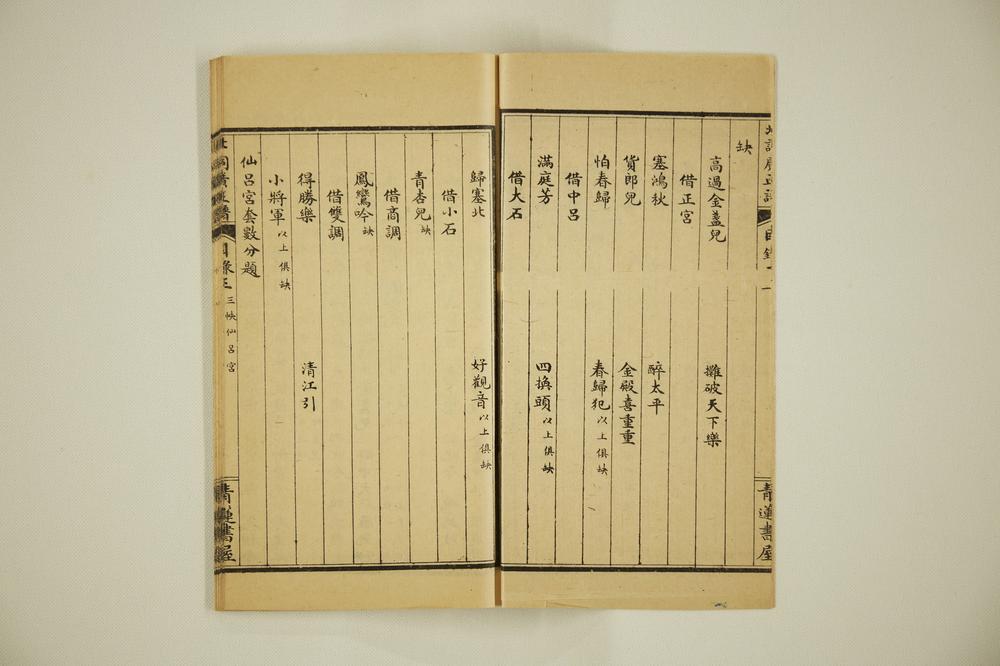 缺
高過金盞兒 攤破天下樂
借正宮
塞鴻秋 醉太平
貨郎兒 金殿喜重重
怕春歸 春歸犯以上俱缺
借中呂
滿庭芳 四換頭以上俱缺
借大石
青蓮書屋
歸塞北 好觀音以上俱缺
借小石
青杏兒缺
借商調
鳳鸞吟缺
借雙調
得勝樂 清江引
小將軍以上俱缺
仙呂宮套數分題
三帙仙呂宮
青蓮書屋